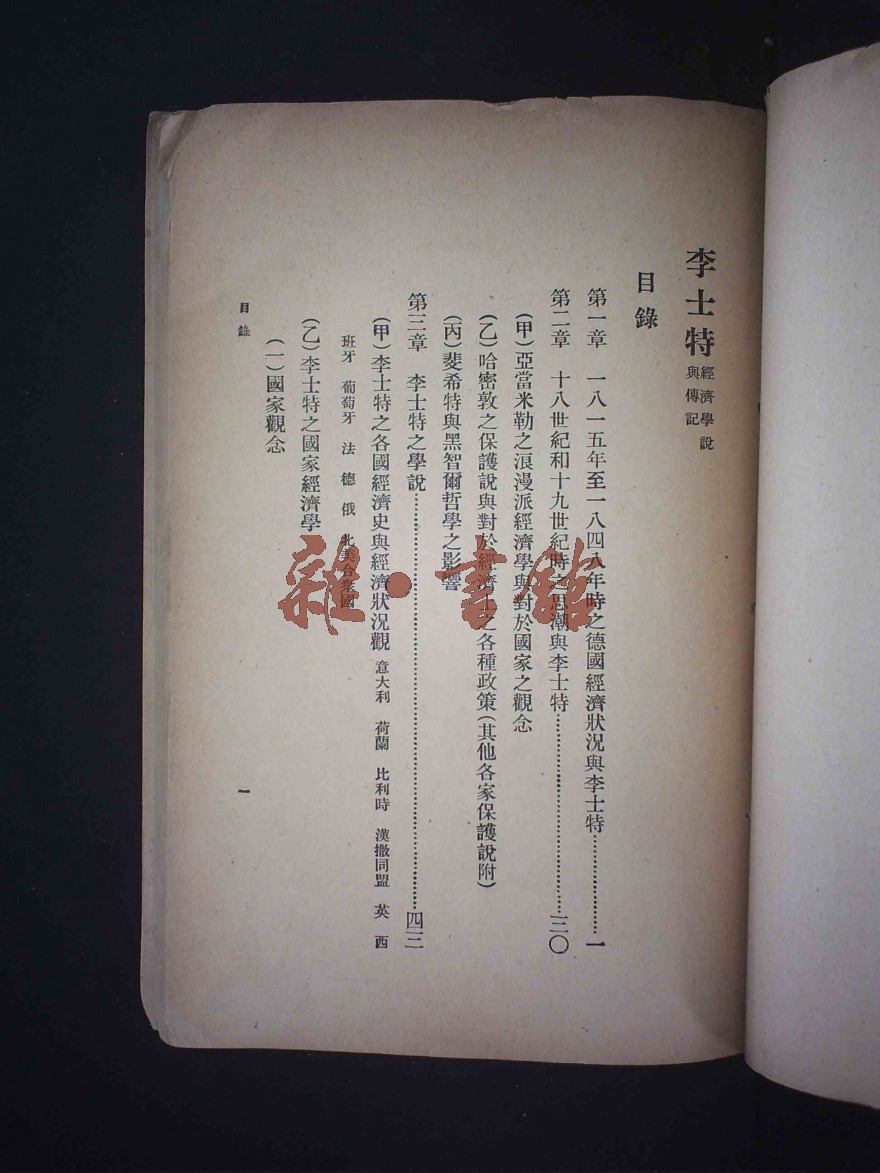 李士特經濟學說與傳記
目錄
第一章 一八一五年至一八四八年時之德國經濟狀況與李士特…………一
第二章 十八世紀和十九世紀時之思潮與李士特…………三〇
(甲)亞當米勒之浪漫派經濟學與對於國家之觀念
(乙)哈密敦之保護說與對於經濟上之各種政策(其他各家保護說附)
(丙)斐希特與黑智爾哲學之影響
第三章 李士特之學說…………四三
(甲)李士特之各國經濟史與經濟狀況觀 意大利 荷蘭 比利時 漢撒同盟 英 西
班牙 葡萄牙 法 德 俄 北美合衆國
(乙)李士特之國家經濟學
(一)國家觀念
目錄
一
雜·書館